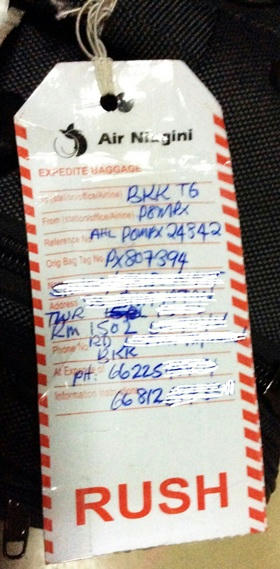 Air Niugini
EXPEDITE BAGGAGE
To (station/office/Airline) BKK TG
From (station/office/Airline) POMPX
Reference No. AHL POMPX 24342
Orig Bag Tag No. PX807394
Address
TWR
RM 1502
Phone No. RD
BKK
PH: 66225
66812
RUSH